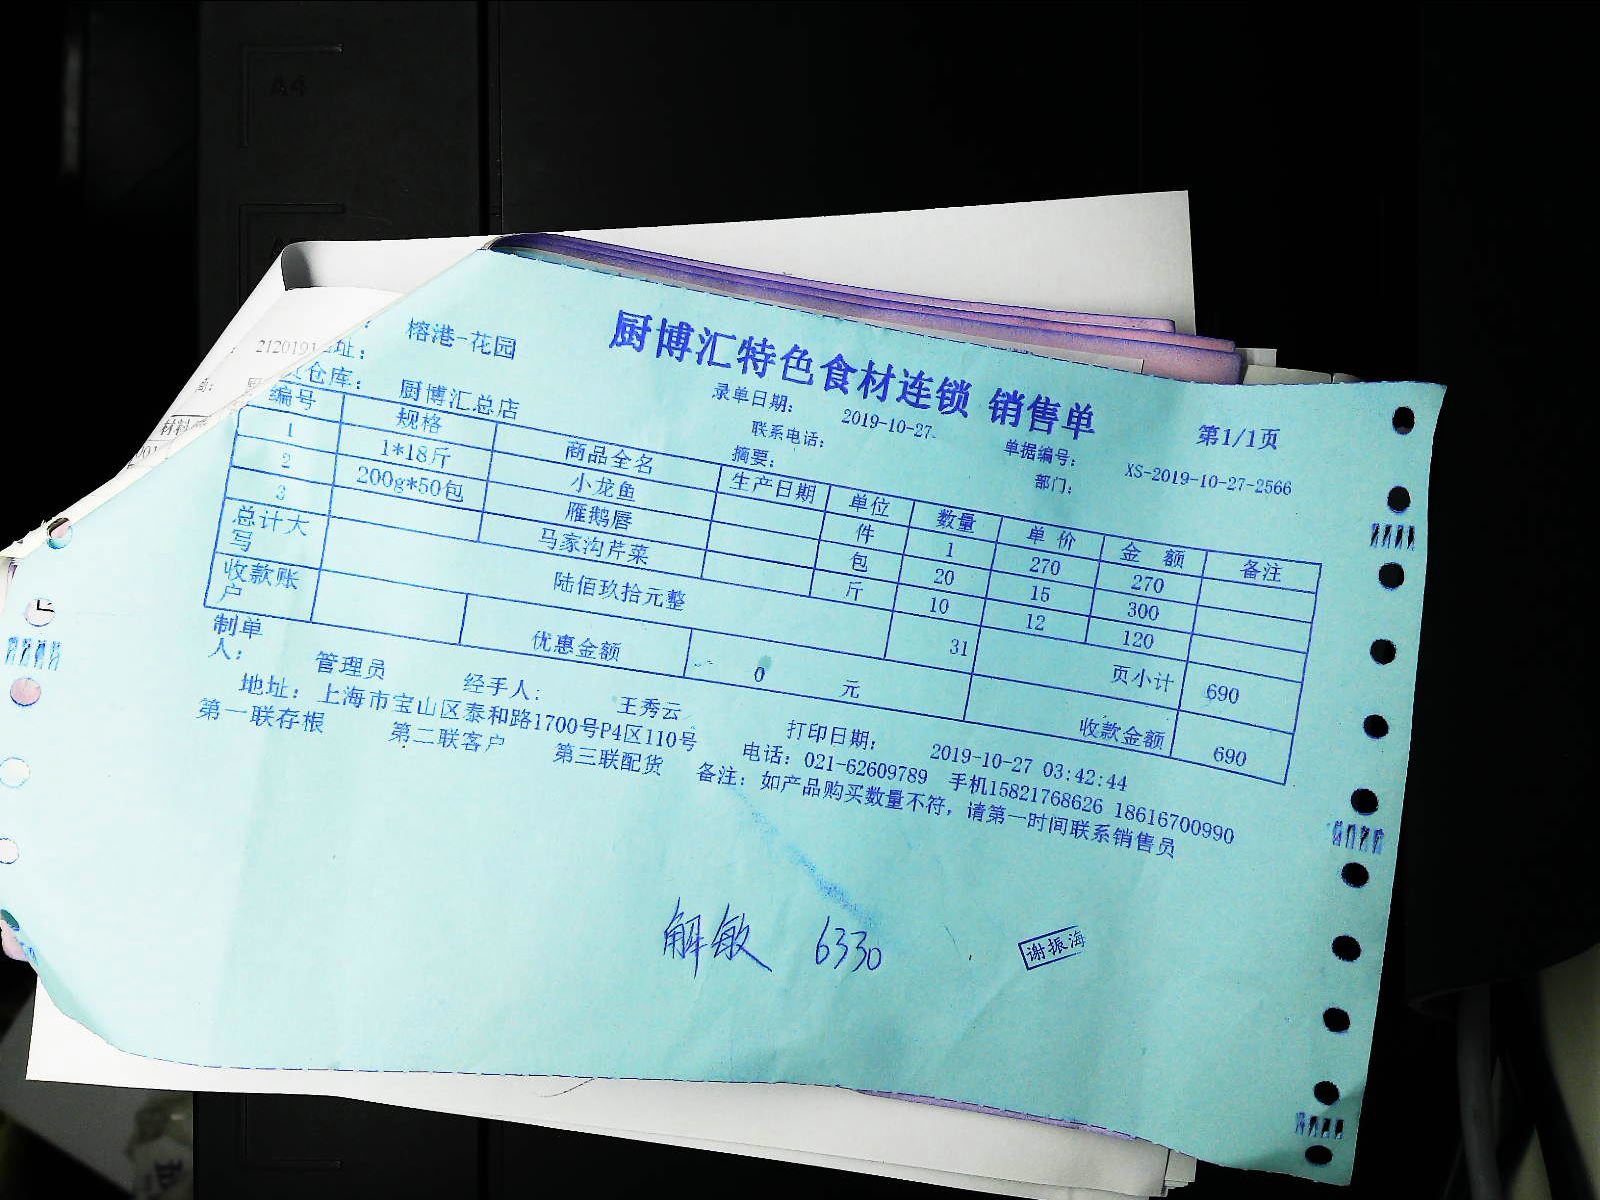 厨博汇特色食材连锁 销售单
第1/1页
榕港-花园
录单日期: 2019-10-27
单据编号: XS-2019-10-27-2566
2120191 址:
仓库: 厨博汇总店
联系电话:
摘要:
部门:
编号 规格 商品全名 生产日期 单位 数量 单价 金额 备注
1 1*18斤 小龙鱼 件 1 270 270
2 200g*50包 雁鹅唇 包 20 15 300
3 马家沟芹菜 斤 10 12 120
总计大写 陆佰玖拾元整 31 页小计 690
收款账户 优惠金额 0 元 收款金额 690
制单人: 管理员 经手人: 王秀云 打印日期: 2019-10-27 03:42:44
地址: 上海市宝山区泰和路1700号P4区110号 电话: 021-62609789 手机15821768626 18616700990
第一联存根 第二联客户 第三联配货 备注: 如产品购买数量不符,请第一时间联系销售员
解敏 6330
谢振海